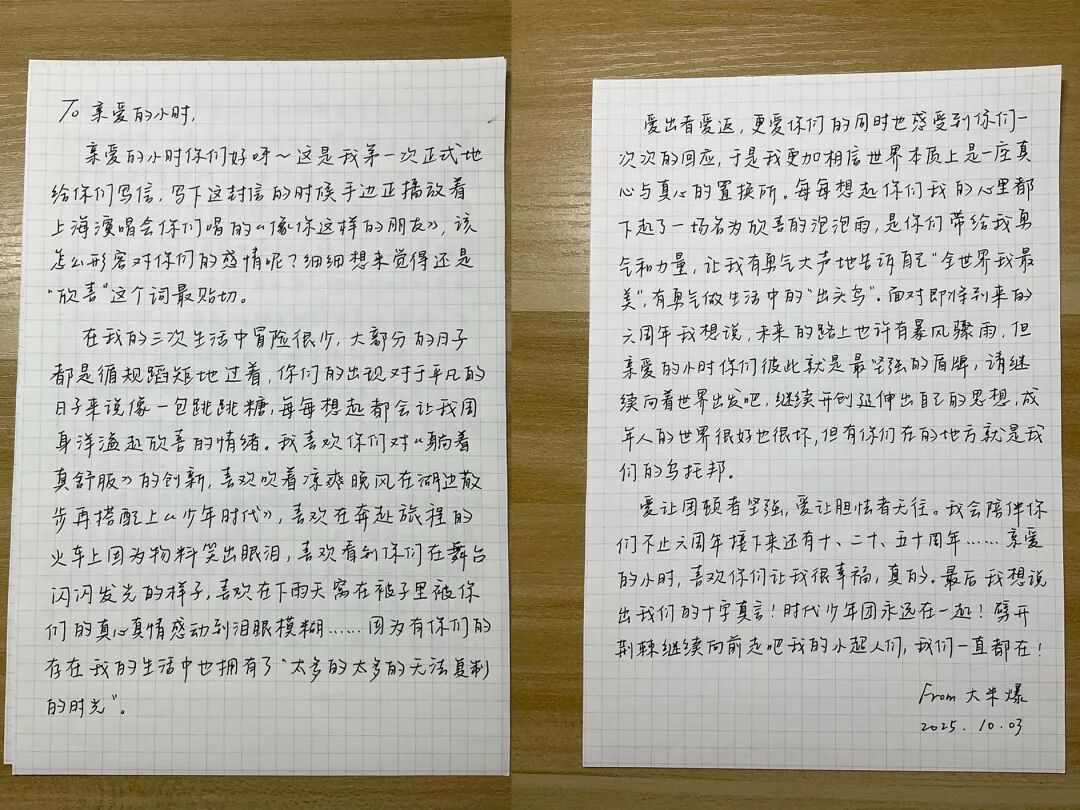 To 亲爱的小时,
亲爱的小时你们好呀~这是我第一次正式地
给你们写信,写下这封信的时候手边正播放着
上海演唱会你们唱的《像你这样的朋友》,该
怎么形容对你们的感情呢?细细想来觉得还是
“欣喜”这个词最贴切。
在我的三次生活中冒险很少,大部分的日子
都是循规蹈矩地过着,你们的出现对于平凡的
日子来说像一包跳跳糖,每每想起都会让我周
身洋溢起欣喜的情绪。我喜欢你们对《躺着
真舒服》的创新,喜欢吹着凉爽晚风在湖边散
步再搭配上《少年时代》,喜欢在奔赴旅程的
火车上因为物料笑出眼泪,喜欢看到你们在舞台
闪闪发光的样子,喜欢在下雨天窝在被子里被你
们的真心真情感动到泪眼模糊……因为有你们的
存在我的生活中也拥有了“太多的太多的无法复制
的时光”。
爱出者爱返,更爱你们的同时也感受到你们一
次次的回应,于是我更加相信世界本质上是一座真
心与真心的置换所。每每想起你们我的心里都
下起了一场名为欣喜的泡泡雨,是你们带给我勇
气和力量,让我有勇气大声地告诉自己“全世界我最
美”,有勇气做生活中的“出头鸟”。面对即将到来的
六周年我想说,未来的路上也许有暴风骤雨,但
亲爱的小时你们彼此就是最坚强的盾牌,请继
续向着世界出发吧,继续开创延伸出自己的思想,成
年人的世界很好也很坏,但有你们在的地方就是我
们的乌托邦。
爱让困顿者坚强,爱让胆怯者无往。我会陪伴你
们不止六周年接下来还有十、二十、五十周年……亲爱
的小时,喜欢你们让我很幸福,真的。最后我想说
出我们的十字真言!时代少年团永远在一起!劈开
荆棘继续向前走吧我的小超人们,我们一直都在!
From 大米爆
2025.10.03